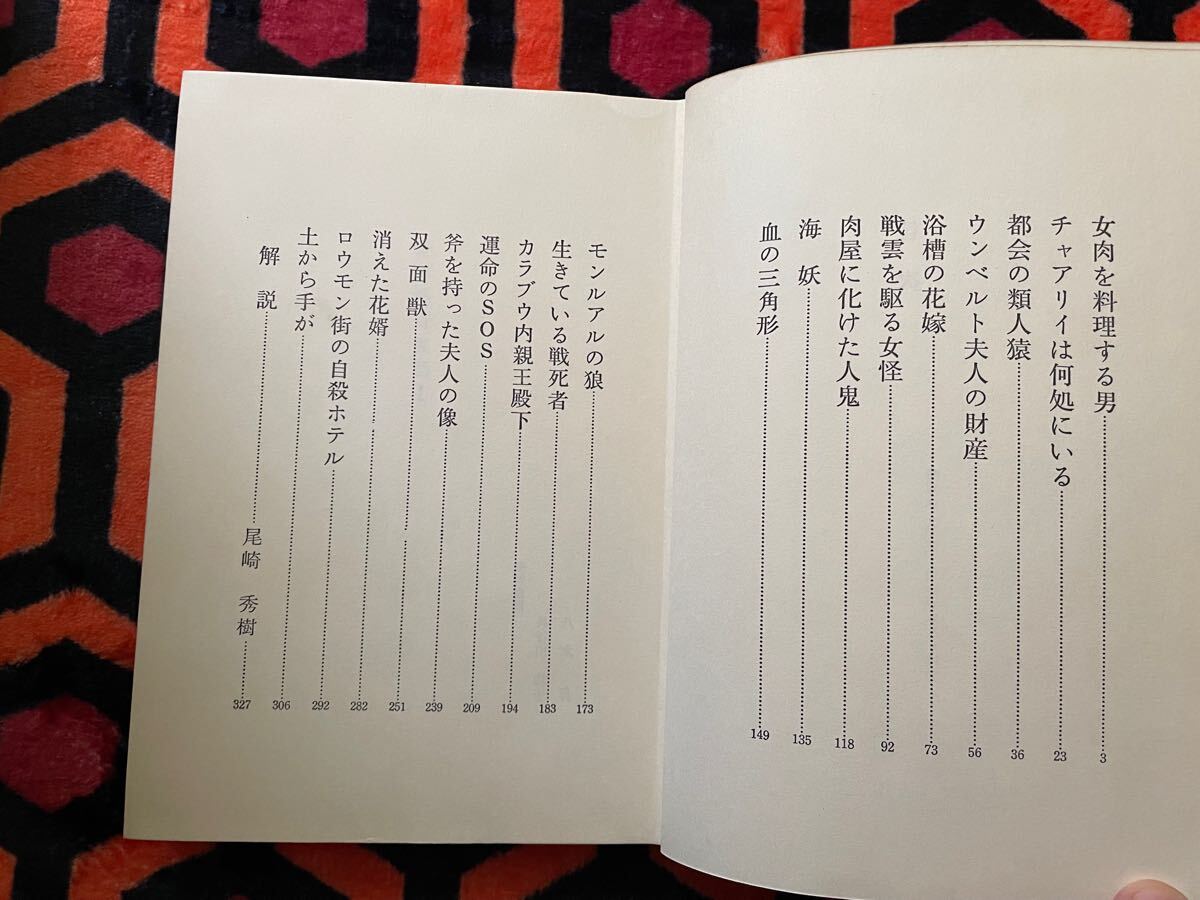 女肉を料理する男…………3
チャアリイは何処にいる…………23
都会の類人猿…………36
ウンベルト夫人の財産…………56
浴槽の花嫁…………73
戦雲を駆る女怪…………92
肉屋に化けた人鬼…………118
海妖…………135
血の三角形…………149
モンルアルの狼…………173
生きている戦死者…………183
カラブウ内親王殿下…………194
運命のSOS…………209
斧を持った夫人の像…………239
双面獣…………251
消えた花婿…………282
ロウモン街の自殺ホテル…………292
土から手が…………306
解説…………尾崎 秀樹…………327